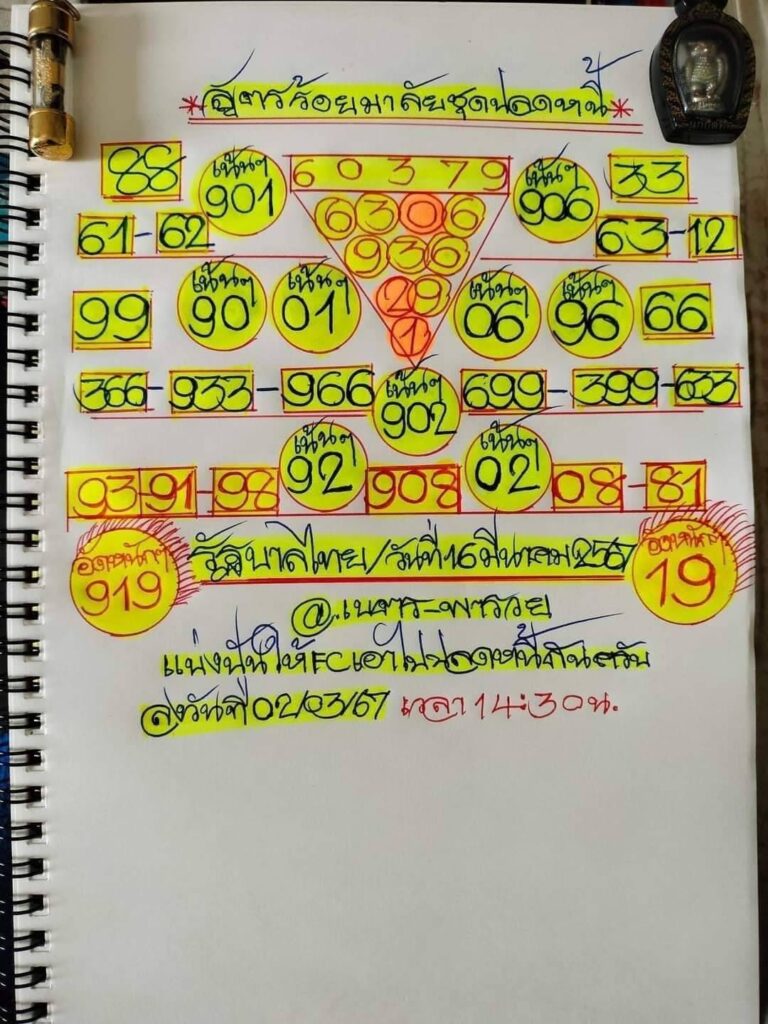 *สูตรร้อยมาลัยชุดปลดหนี้*
88 เน้นๆ 901 6 0 3 7 9 เน้นๆ 906 33
61-62 6 3 0 6 63-12
9 3 6
99 เน้นๆ 90 เน้นๆ 01 2 9 เน้นๆ 06 เน้นๆ 96 66
1
366-933-966 เน้นๆ 902 699-399-633
93-91-98 เน้นๆ 92 908 เน้นๆ 02 08-81
919 รัฐบาลไทย/วันที่16มีนาคม2567 19
แบ่งปันให้FCเอาไปปลดหนี้กันครับ
ลงวันที่02/03/67 เวลา14:30น.